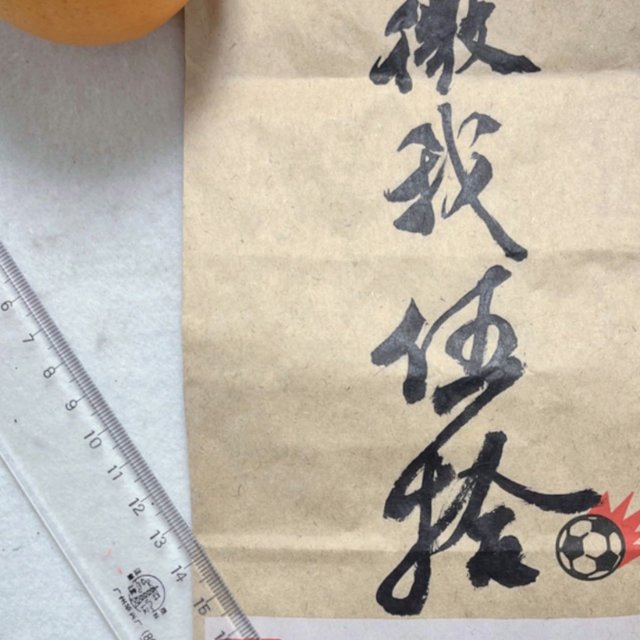 微我伍拾
6 7 8 9 10 11 12 13 14 15